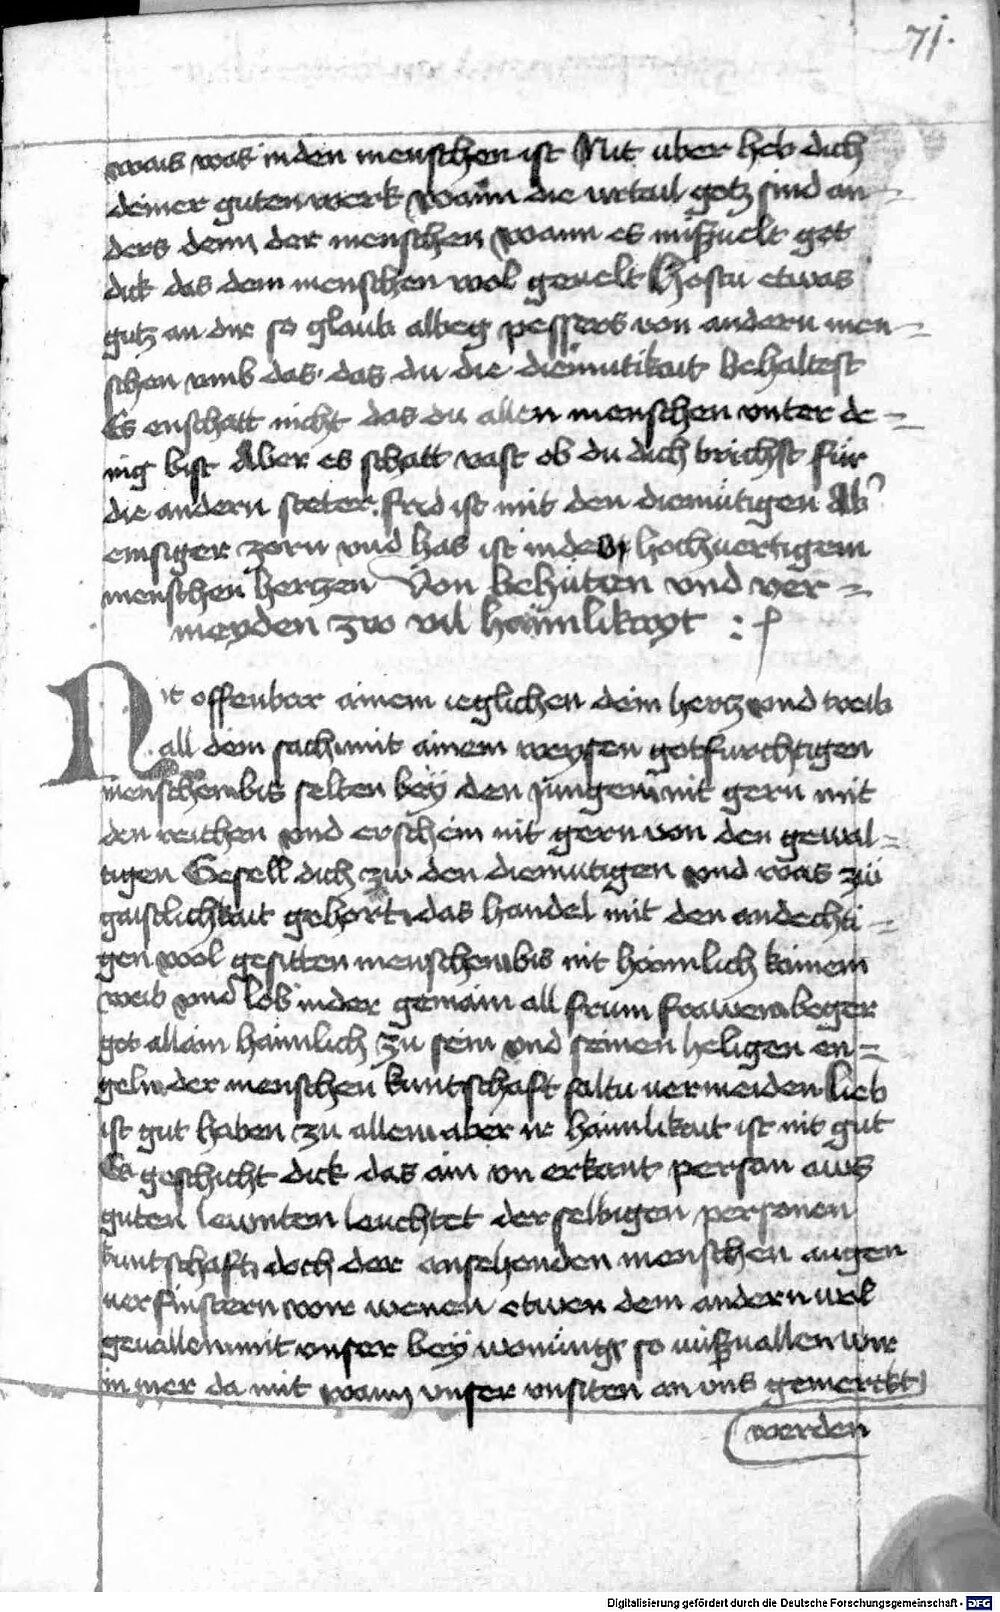 71.
wais was in den menschen ist Nit uber heb dich
deiner guten werk wann die urtail gotz sind an=
ders denn der menschen wann es mißuelt got
dick das dem menschen wol geuelt Hastu etwas
gutz an dir so glaub albeg pessers von andern men=
schen vmb das das du die diemutikait behaltest
Es enschatt nicht das du allen menschen vnter de=
nig bist Aber es schatt vast ob du dich brichst für
die andern steter frid ist mit den diemütigen Ab
emsiger zorn vnd has ist in dem hochuertigem
menschen hertzen Von behüten vnd ver=
meyden zw vil haimlikayt :
Nit offenbar ainem ieglichen dein hertz vnd treib
all dein sach mit ainem weysen gotfurchtigen
menschen bis selten bey den jungen nit gern mit
den reichen vnd erschein nit gern von den gewal=
tigen Gesell dich zu den diemutigen vnd was zü
gaistlichkait gehort das handel mit den andechti=
gen wol gesitten menschen bis nit haimlich kainem
weib vnd lob in der gemain all frum frawen beger
got allain haimlich zu sein vnd seinen heligen en=
geln der menschen kuntschaft saltu vermeiden lieb
ist gut haben zu allen aber ir haimlikait ist nit gut
Es geschicht dick das ain vn erkant person aws
guten lewnten leuchtet der selbigen personen
kuntschaft doch der ansehenden menschen augen
verfinstern wir wenen etwen dem andern wol
geuallen mit vnser bey wonung so mißuallen wir
in mer da mit wann vnser vnsiten an vns gemerckt
werden
Digitalisierung gefördert durch die Deutsche Forschungsgemeinschaft - DFG